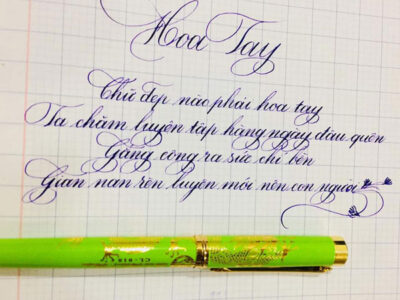 Hoa Tay
Chữ đẹp nào phải hoa tay
Ta chăm luyện tập hàng ngày đâu quên
Gắng công ra sức chí bền
Gian nan rèn luyện mới nên con người
CL-818